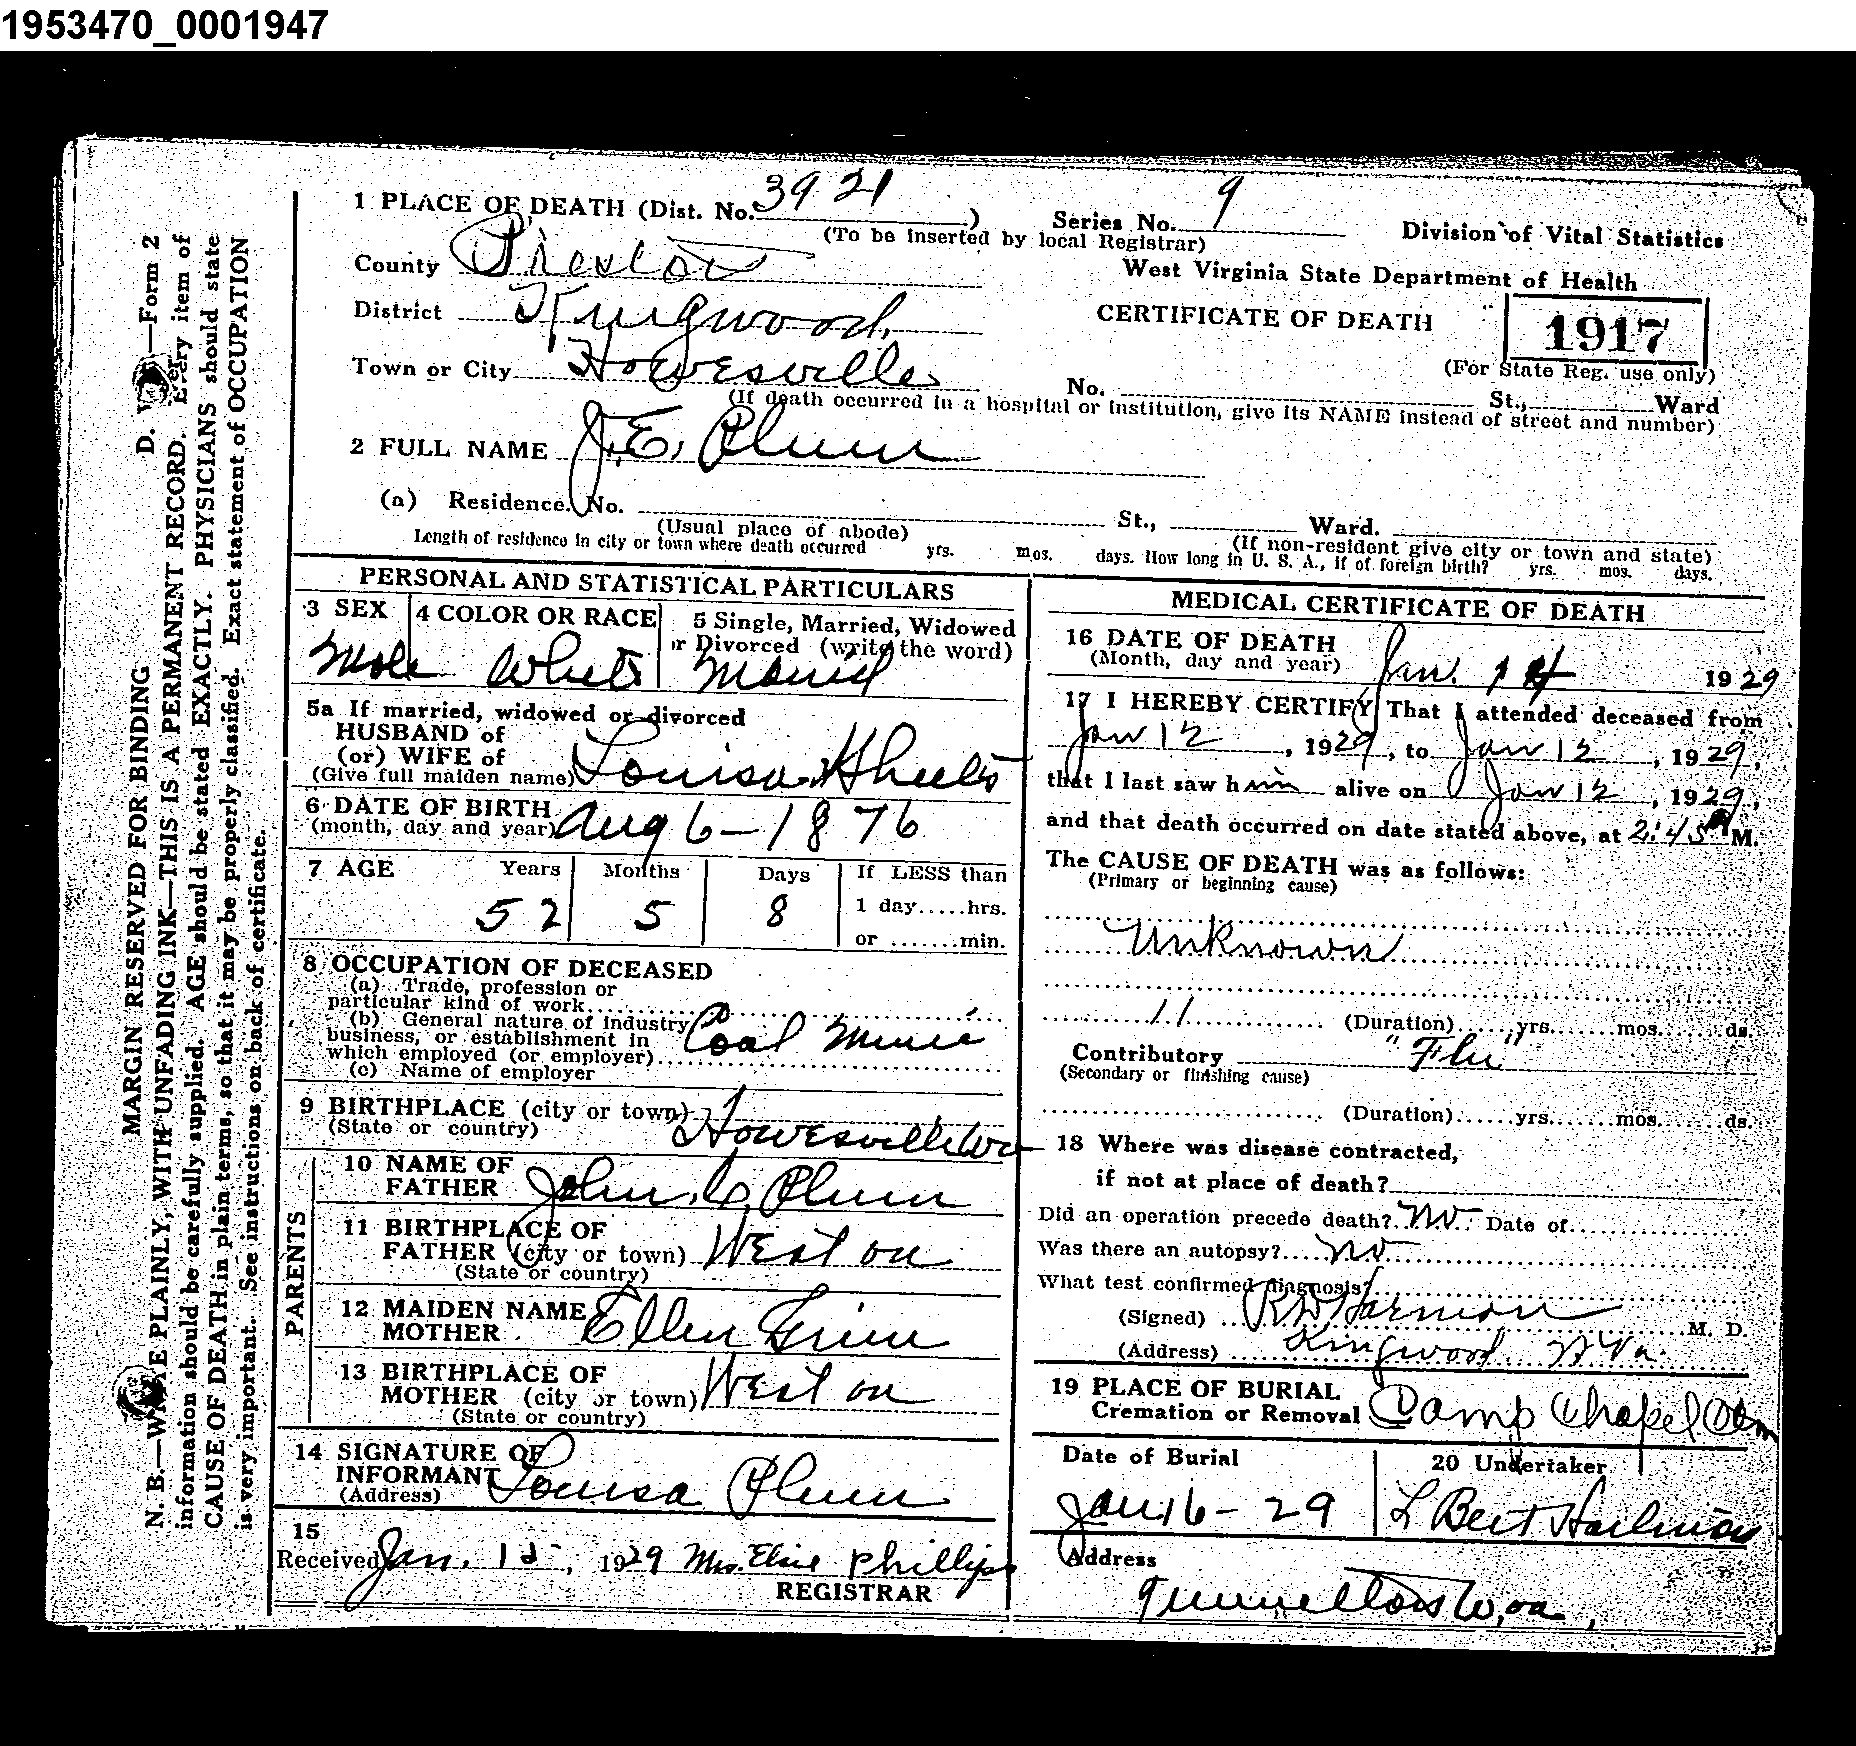 1953470_0001947
1 PLACE OF DEATH (Dist. No. 3921 ) Series No. 9 Division of Vital Statistics
(To be inserted by local Registrar)
County Preston West Virginia State Department of Health
District Kingwood CERTIFICATE OF DEATH 1917
(For State Reg. use only)
Town or City Howesville No. St., Ward
(If death occurred in a hospital or institution, give its NAME instead of street and number)
2 FULL NAME J. E. Plum
(a) Residence. No. St., Ward.
(Usual place of abode) (If non-resident give city or town and state)
Length of residence in city or town where death occurred yrs. mos. days. How long in U. S. A., if of foreign birth? yrs. mos. days.
PERSONAL AND STATISTICAL PARTICULARS
3 SEX 4 COLOR OR RACE 5 Single, Married, Widowed
or Divorced (write the word)
Male White Married
5a If married, widowed or divorced
HUSBAND of
(or) WIFE of
(Give full maiden name) Louisa
6 DATE OF BIRTH
(month, day and year) Aug 6-1876
7 AGE Years Months Days If LESS than
52 5 8 1 day.....hrs.
or .......min.
8 OCCUPATION OF DECEASED
(a) Trade, profession or
particular kind of work
(b) General nature of industry
business, or establishment in
which employed (or employer) Coal
(c) Name of employer
9 BIRTHPLACE (city or town)
(State or country) Howesville Wva
PARENTS
10 NAME OF
FATHER John C. Plum
11 BIRTHPLACE OF
FATHER (city or town) Weston
(State or country)
12 MAIDEN NAME
MOTHER Ellen
13 BIRTHPLACE OF
MOTHER (city or town) Weston
(State or country)
14 SIGNATURE OF
INFORMANT Louisa Plum
(Address)
15
Received Jan. 15, 1929 Mrs. Elsie Phillips
REGISTRAR
MEDICAL CERTIFICATE OF DEATH
16 DATE OF DEATH
(Month, day and year) Jan. 14 1929
17 I HEREBY CERTIFY That I attended deceased from
Jan 12, 1929, to Jan 12, 1929,
that I last saw him alive on Jan 12, 1929,
and that death occurred on date stated above, at 2:45 M.
The CAUSE OF DEATH was as follows:
(Primary or beginning cause)
Unknown
11 (Duration)......yrs.......mos.......ds.
Contributory "Flu"
(Secondary or finishing cause)
(Duration)......yrs.......mos.......ds.
18 Where was disease contracted,
if not at place of death?
Did an operation precede death? No Date of
Was there an autopsy? No
What test confirmed diagnosis?
(Signed) R W Harmon M. D.
(Address) Kingwood W Va.
19 PLACE OF BURIAL
Cremation or Removal Camp Chapel Cem
Date of Burial 20 Undertaker
Jan. 16-29 L Bert
Address
Tunnelton W. Va.
MARGIN RESERVED FOR BINDING D. —Form 2
N. B.—WRITE PLAINLY, WITH UNFADING INK—THIS IS A PERMANENT RECORD. Every item of
information should be carefully supplied. AGE should be stated EXACTLY. PHYSICIANS should state
CAUSE OF DEATH in plain terms, so that it may be properly classified. Exact statement of OCCUPATION
is very important. See instructions on back of certificate.